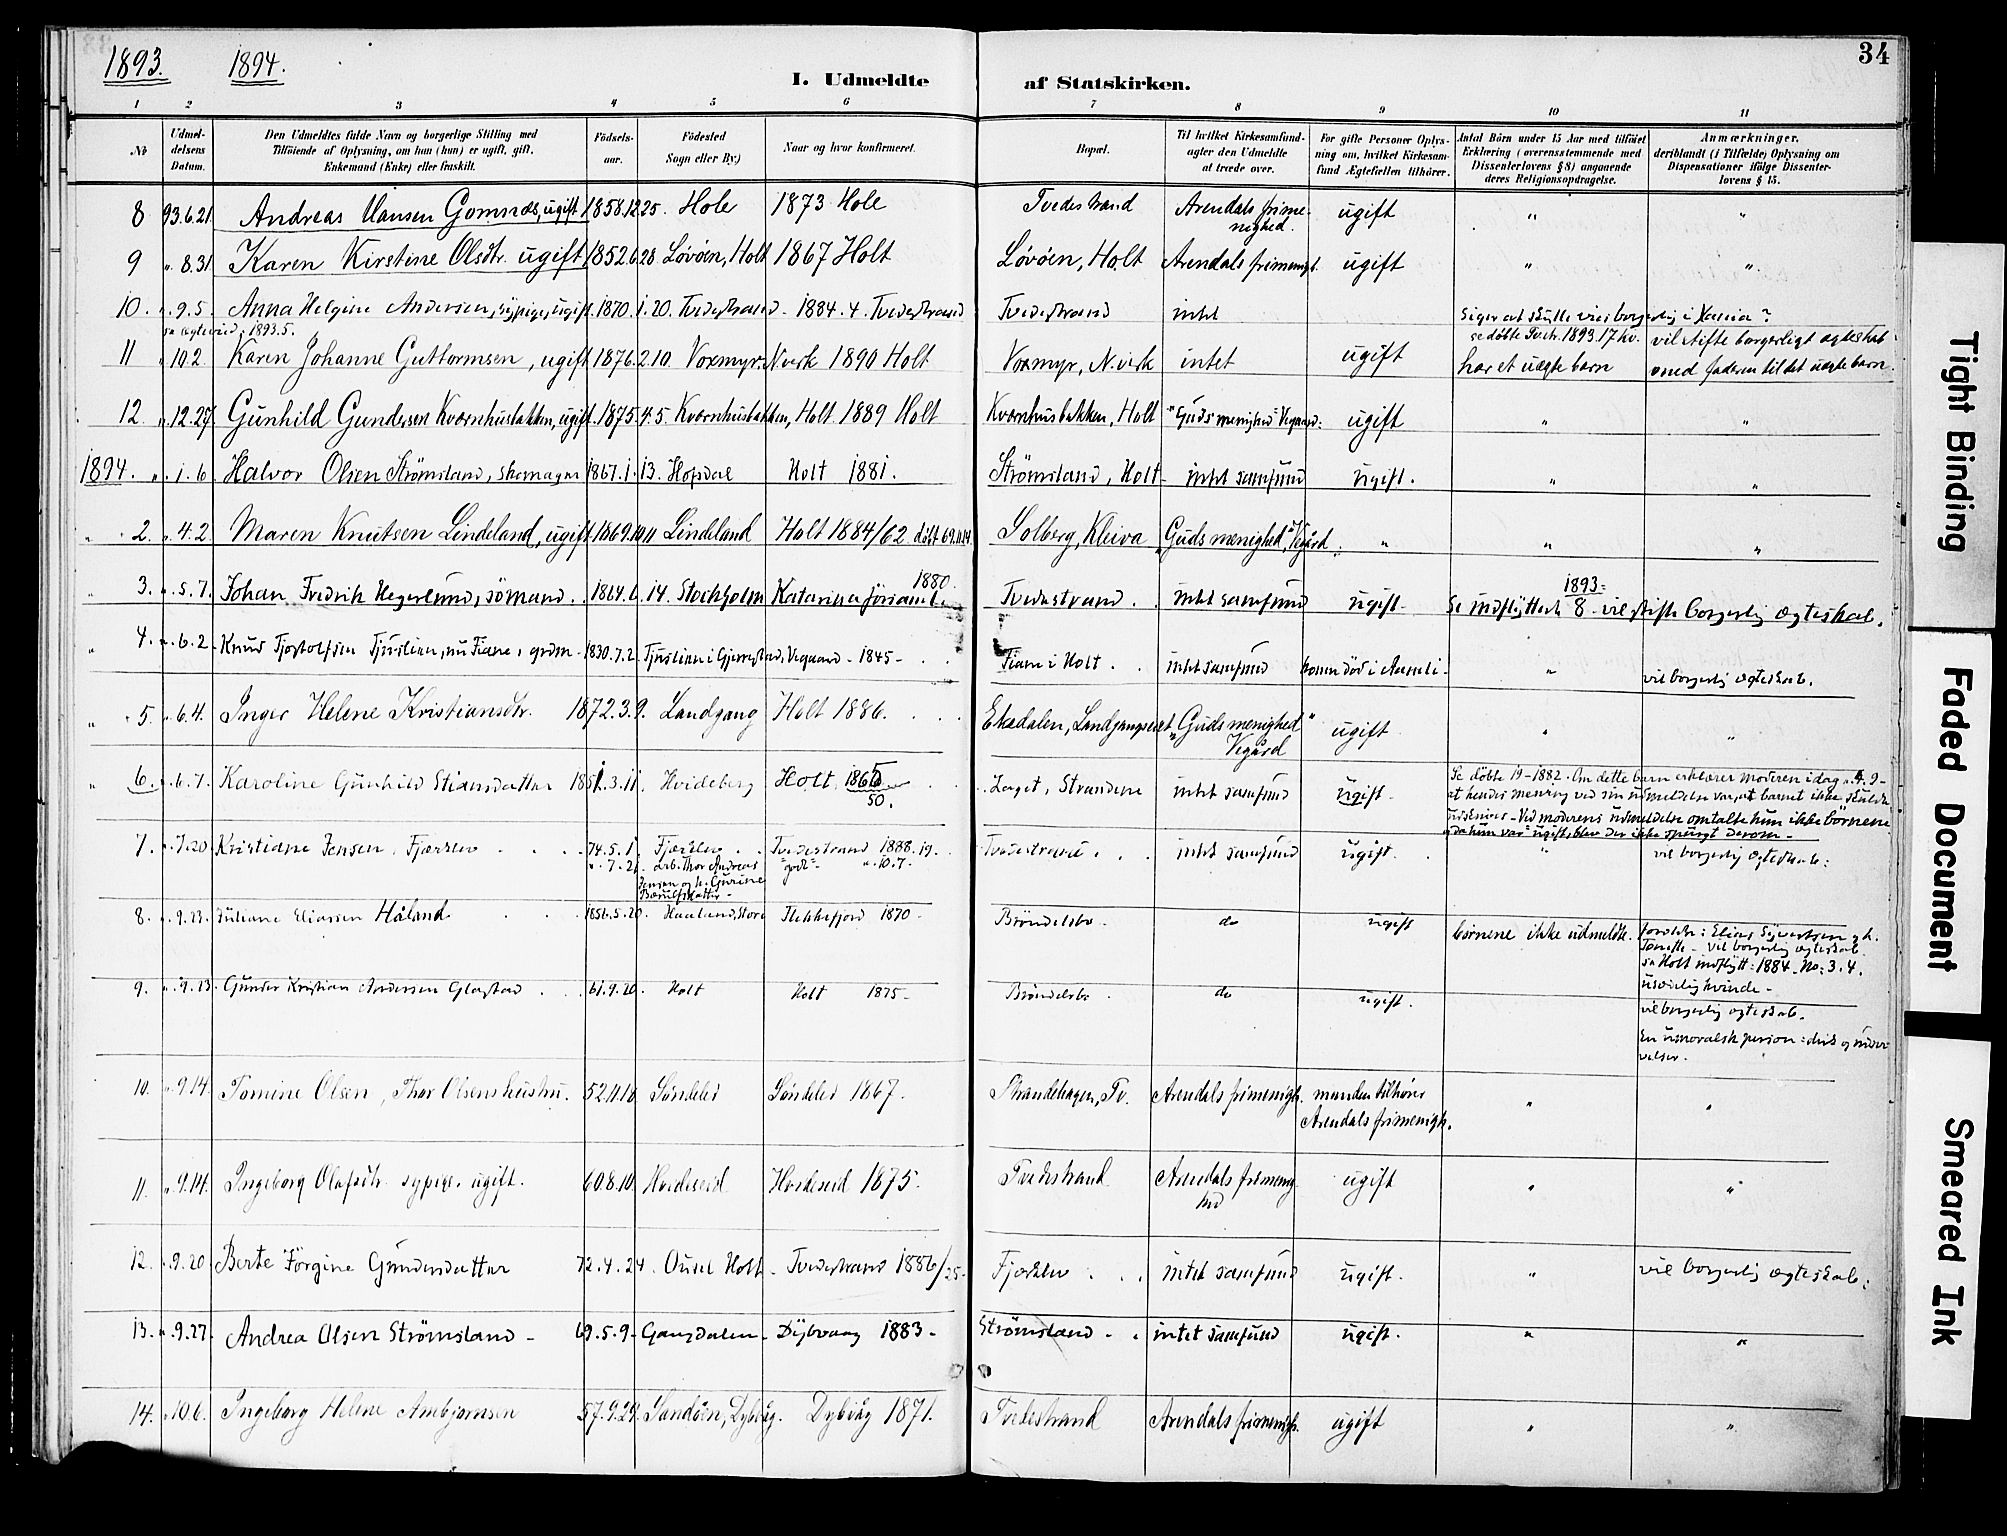 1893. 1894.
34
I. Udmeldte af Statskirken.
1 2 3 4 5 6 7 8 9 10 11
No
Udmeldelsens Datum.
Den Udmeldtes fulde Navn og borgerlige Stilling med
Tilföiende af Oplysning, om han (hun) er ugift, gift,
Enkemand (Enke) eller fraskilt.
Födselsaar.
Födested
Sogn eller By.)
Naar og hvor konfirmeret.
Bopæl.
Til hvilket Kirkesamfund-
agter den Udmeldte
at træde over.
For gifte Personer Oplys-
ning om, hvilket Kirkesam-
fund Ægtefællen tilhörer.
Antal Börn under 15 Aar med tilföiet
Erklæring (overensstemmende med
Dissenterlovens § 8) angaaende
deres Religionsopdragelse.
Anmærkninger,
deriblandt (i Tilfælde) Oplysning om
Dispensationer ifölge Dissenter-
lovens § 15.
8 93.6.21 Andreas Hansen Gomnæs, ugift 1858.12.25. Hole 1873 Hole Tvedestrand Arendals frime-
nighed. ugift " "
9 " 8.31 Karen Kirstine Olsdtr. ugift 1852.6.28 Løvøen, Holt 1867 Holt Løvøen, Holt Arendals frimenigh. ugift " "
10. " 9.5. Anna Helgine Andersen, sypige, ugift. 1870.1.20. Tvedestrand - 1884.4. Tvedestrand Tvedestrand intet
1893.5.
11 " 10.2 Karen Johanne Guttormsen, ugift 1876.2.10. Voxmyr. N.verk 1890 Holt Voxmyr, N.verk intet ugift har et uægte barn
vil stifte borgerligt ægteskab
med faderen til det uægte barn.
12. " 12.27. Gunhild Gundersen Kvernhusbakken, ugift. 1875.4.5. Kvernhusbakken, Holt. 1889 Holt Kvernhusbakken, Holt "Guds menighed" Vegaard: ugift " "
1894. " 1.6. Halvor Olsen Strömsland, skomager 1867.1.13. Hopdal Holt 1881. Strömsland, Holt - intet samfund ugift. " "
" 2. " 4.2. Maren Knutsen Lindeland, ugift. 1869.10.11 Lindeland Holt 1884/62 døbt 69.11.14. Solberg, Kleiva "Guds menighed", Vegård " " "
" 3. " 5.7. Johan Fredrik Hegerlund, sömand. 1864.6.14. Stockholm Katarina 1880. Tvedestrand. intet samfund ugift. Se indflyttede 1893: 8 - vil stifte borgerlig ægteskab.
" 4. " 6.2. 1830.7.2. Vegaard - 1845 - i Holt. intet samfund konen död i " vil borgerlig ægteskab.
" 5. " 6.4. Inger Helene Kristiansdtr. 1872.3.9. Landgang Holt 1886. Ekedalen, "Guds menighed"
Vegård ugift " "
" 6. " 6.7. Karoline Gunhild Stiansdatter 1851.3.11. Hvideberg Holt 1865
50. Strandene intet samfund ugift.
Se döbte 19-1882. Om dette barn erklærer moderen idag
at hendes mening ved sin udmeldelse var, at barnet ikke skulde
Ved moderens udmeldelse omtalte hun ikke börnene
og da hun var "ugift", blev der ikke spurgt derom -
7. " 7.20 Kristiane Jensen, Fjærklev 74.5.1 Fjærklev. Tvedestrand 1888.19. Tvedestrand. intet samfund ugift. " vil borgerlig ægteskab:
" 7.21. Thor Andreas
Jensen og h. Gurine
" 10.7.
8. " 9.13. Juliane Eliassen Håland. 1856.5.20. Flekkefjord 1870 - Bröndelsbo. do ugift börnene ikke udmeldte.
forældre: Elias Syvertsen og h.
vil borgerlig ægteskab
se Holt indflytt: 1884. No: 3.4.
9. " 9.13. Gunder Kristian Andersen Glastad. 61.9.20. Holt Holt 1875 - Bröndelsbo. do ugift.
vil borgerlig ægteskab.
En umoralsk person:
10. " 9.14. Tomine Olsen, Thor Olsens hustru. 52.11.10 Søndeled Søndeled 1867. Strandehagen, Tv. Arendals frimenigh. manden tilhører
Arendals frimenigh. " "
11. " 9.14. Ingeborg Olafsdtr. sypige. ugift. 60.8.10. Hvideseid Hvideseid 1875. Tvedestrand Arendals frimenig-
hed ugift " "
12. " 9.20 Berte Jörgine Gundersdatter 72.4.24. Holt - Tvedestrand 1886/25. Fjærklev. intet samfund ugift. " vil borgerlig ægteskab:
13. " 9.27. Andrea Olsen Strömsland - 69.5.9. Gangdalen - Dybvaag 1883 - Strömsland - intet samfund ugift. " "
14. " 10.6. Ingeborg Helene Ambjørnsen 57.9.29. Sandøen, Dybvåg. Dybvåg 1871. Tvedestrand Arendals frimenigh. ugift " "
Tight Binding
Faded Document
Smeared Ink